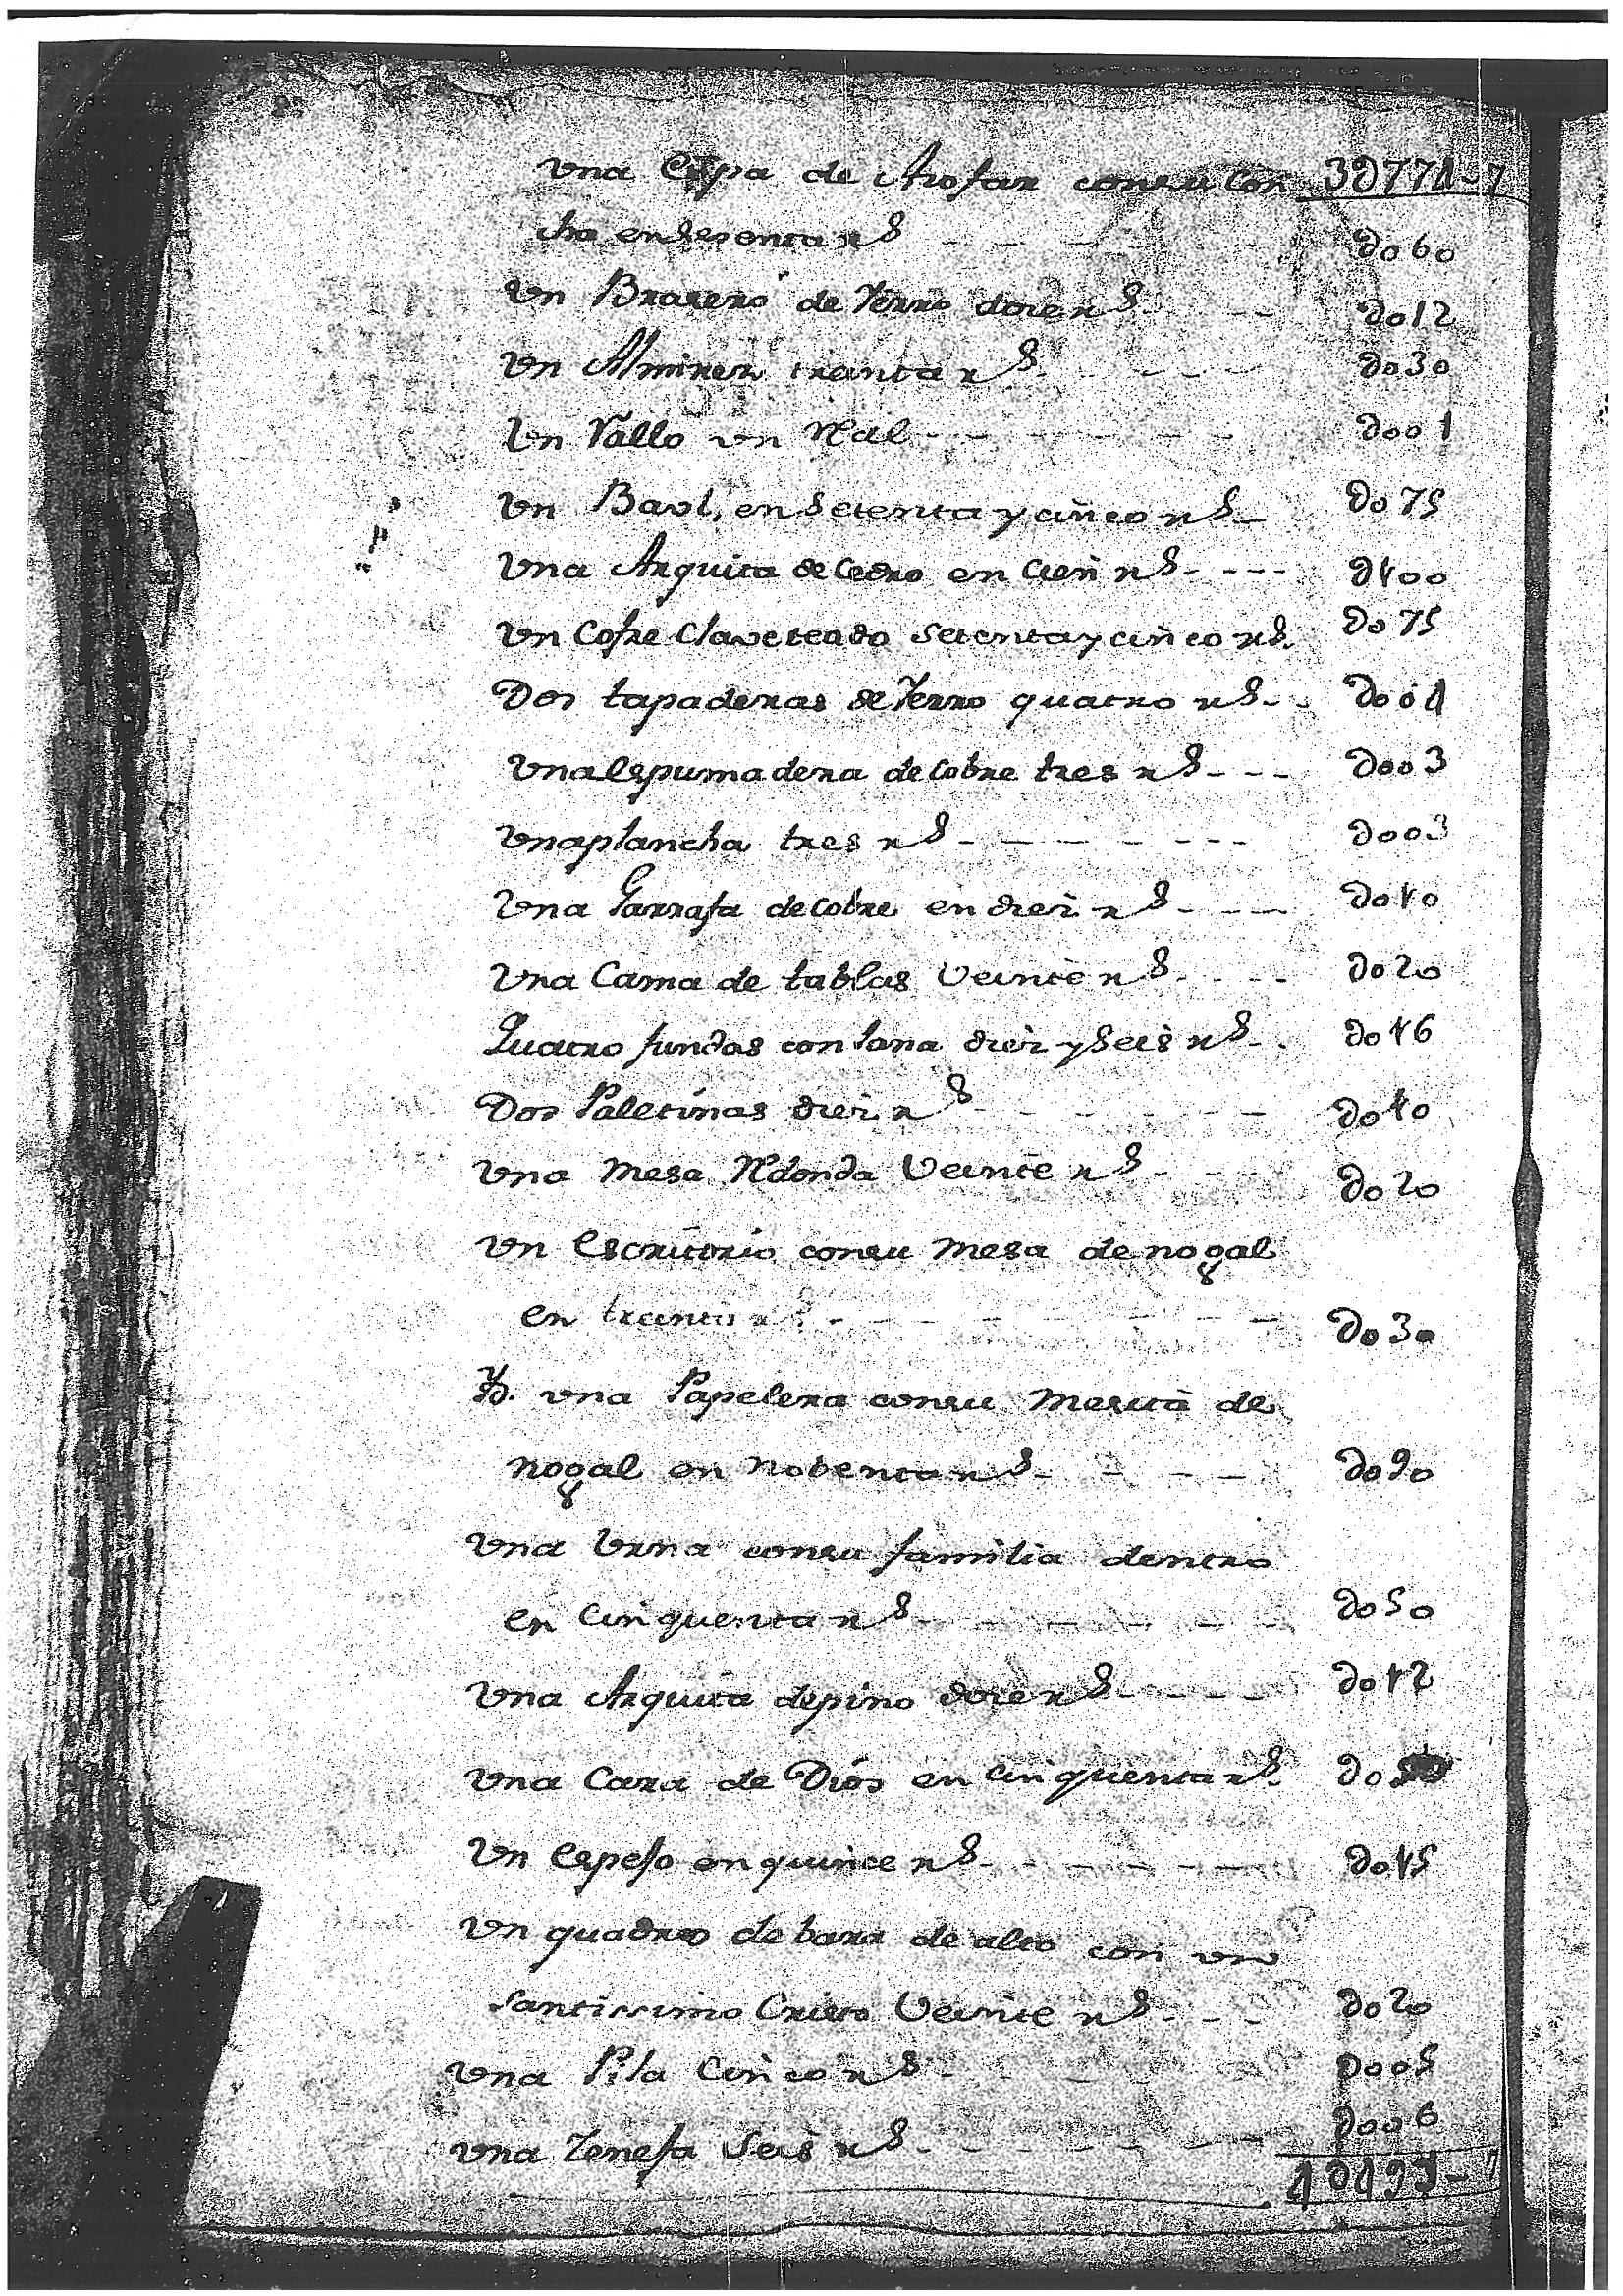 Vna Copa de Arofar consu Con 3D774-7
cha en Sesenta rs - - - - - Do60
Vn Brasero de Yerro doce rs - - Do12
Vn Almirez treinta rs - - - - Do30
Vn Vallo vn Real - - - - - - Doo1
Vn Baol, en Setenta y cinco rs - Do75
Vna Arquita de Cedro en Cien rs - - - D100
Vn Cofre Claveteado Setenta y cinco rs. Do75
Dos tapaderas de Yerro quatro rs - - Doo4
Vna espumadera de cobre tres rs - - - Doo3
Vna plancha tres rs - - - - - - - Doo3
Vna Garrafa de cobre en diez rs - - - Do10
Vna Cama de tablas Veinte rs - - - - Do20
Quatro fundas con lana diez y Seis rs - - Do16
Dos Paletinas diez rs - - - - - - Do10
Vna Mesa Rdonda Veinte rs - - - Do20
Vn escritorio consu mesa de nogal
en treinta rs - - - - - - - - Do30
Yd. vna Papelera consu Mesita de
nogal en nobenta rs - - - - Do90
Vna Vrna consu familia dentro
en Cinquenta rs - - - - - - Do50
Vna Arquita de pino doce rs - - - - Do12
Vna Cara de Dios en Cinquenta rs. Do50
Vn espejo en quince rs - - - - - - Do15
Vn quadro de bara de alto con vn
Santissimo Cristo Veinte rs - - - Do20
Vna Pila Cinco rs - - - - - Doo5
Vna Zenefa Seis rs - - - - - - Doo6
4D497-7